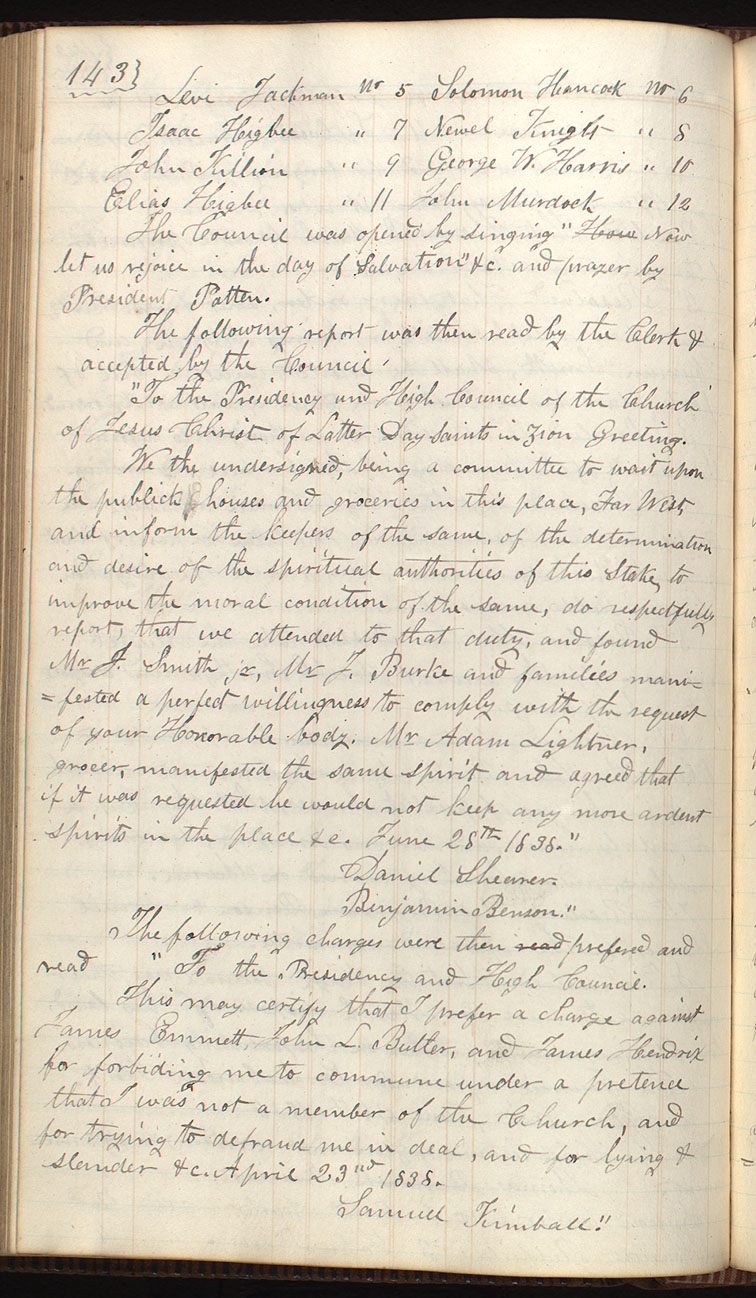 143}
Levi Jackman No 5 Solomon Hancock No 6
Isaac Higbee " 7 Newel Knight " 8
John Killion " 9 George W. Harris " 10
Elias Higbee " 11 John Murdock " 12
The Council was opened by singing "How Now
let us rejoice in the day of Salvation" &c. and prazer by
President Patten.
The following report was then read by the Clerk &
accepted by the Council.
"To the Presidency and High Council of the Church
of Jesus Christ of Latter Day Saints in Zion Greeting.
We the undersigned, being a committee to wait upon
the publick houses and groceries in this place, Far West,
and inform the keepers of the same, of the determination
and desire of the spiritual authorities of this Stake, to
improve the moral condition of the same, do respectfully
report, that we attended to that duty, and found
Mr J. Smith jr, Mr J. Burke and families mani-
=fested a perfect willingness to comply with the request
of your Honorable body. Mr Adam Lightner,
grocer, manifested the same spirit and agreed that
if it was requested he would not keep any more ardent
spirits in the place &c. June 28th 1838."
Daniel Shearer.
Benjamin Benson."
The following charges were then read prefered and
read "To the Presidency and High Council.
This may certify that I prefer a charge against
James Emmett, John L. Butler, and James Hendrix
for forbiding me to commune under a pretence
that I was not a member of the Church, and
for trying to defraud me in deal, and for lying &
slander &c. April 23nd 1838.
Samuel Kimball."